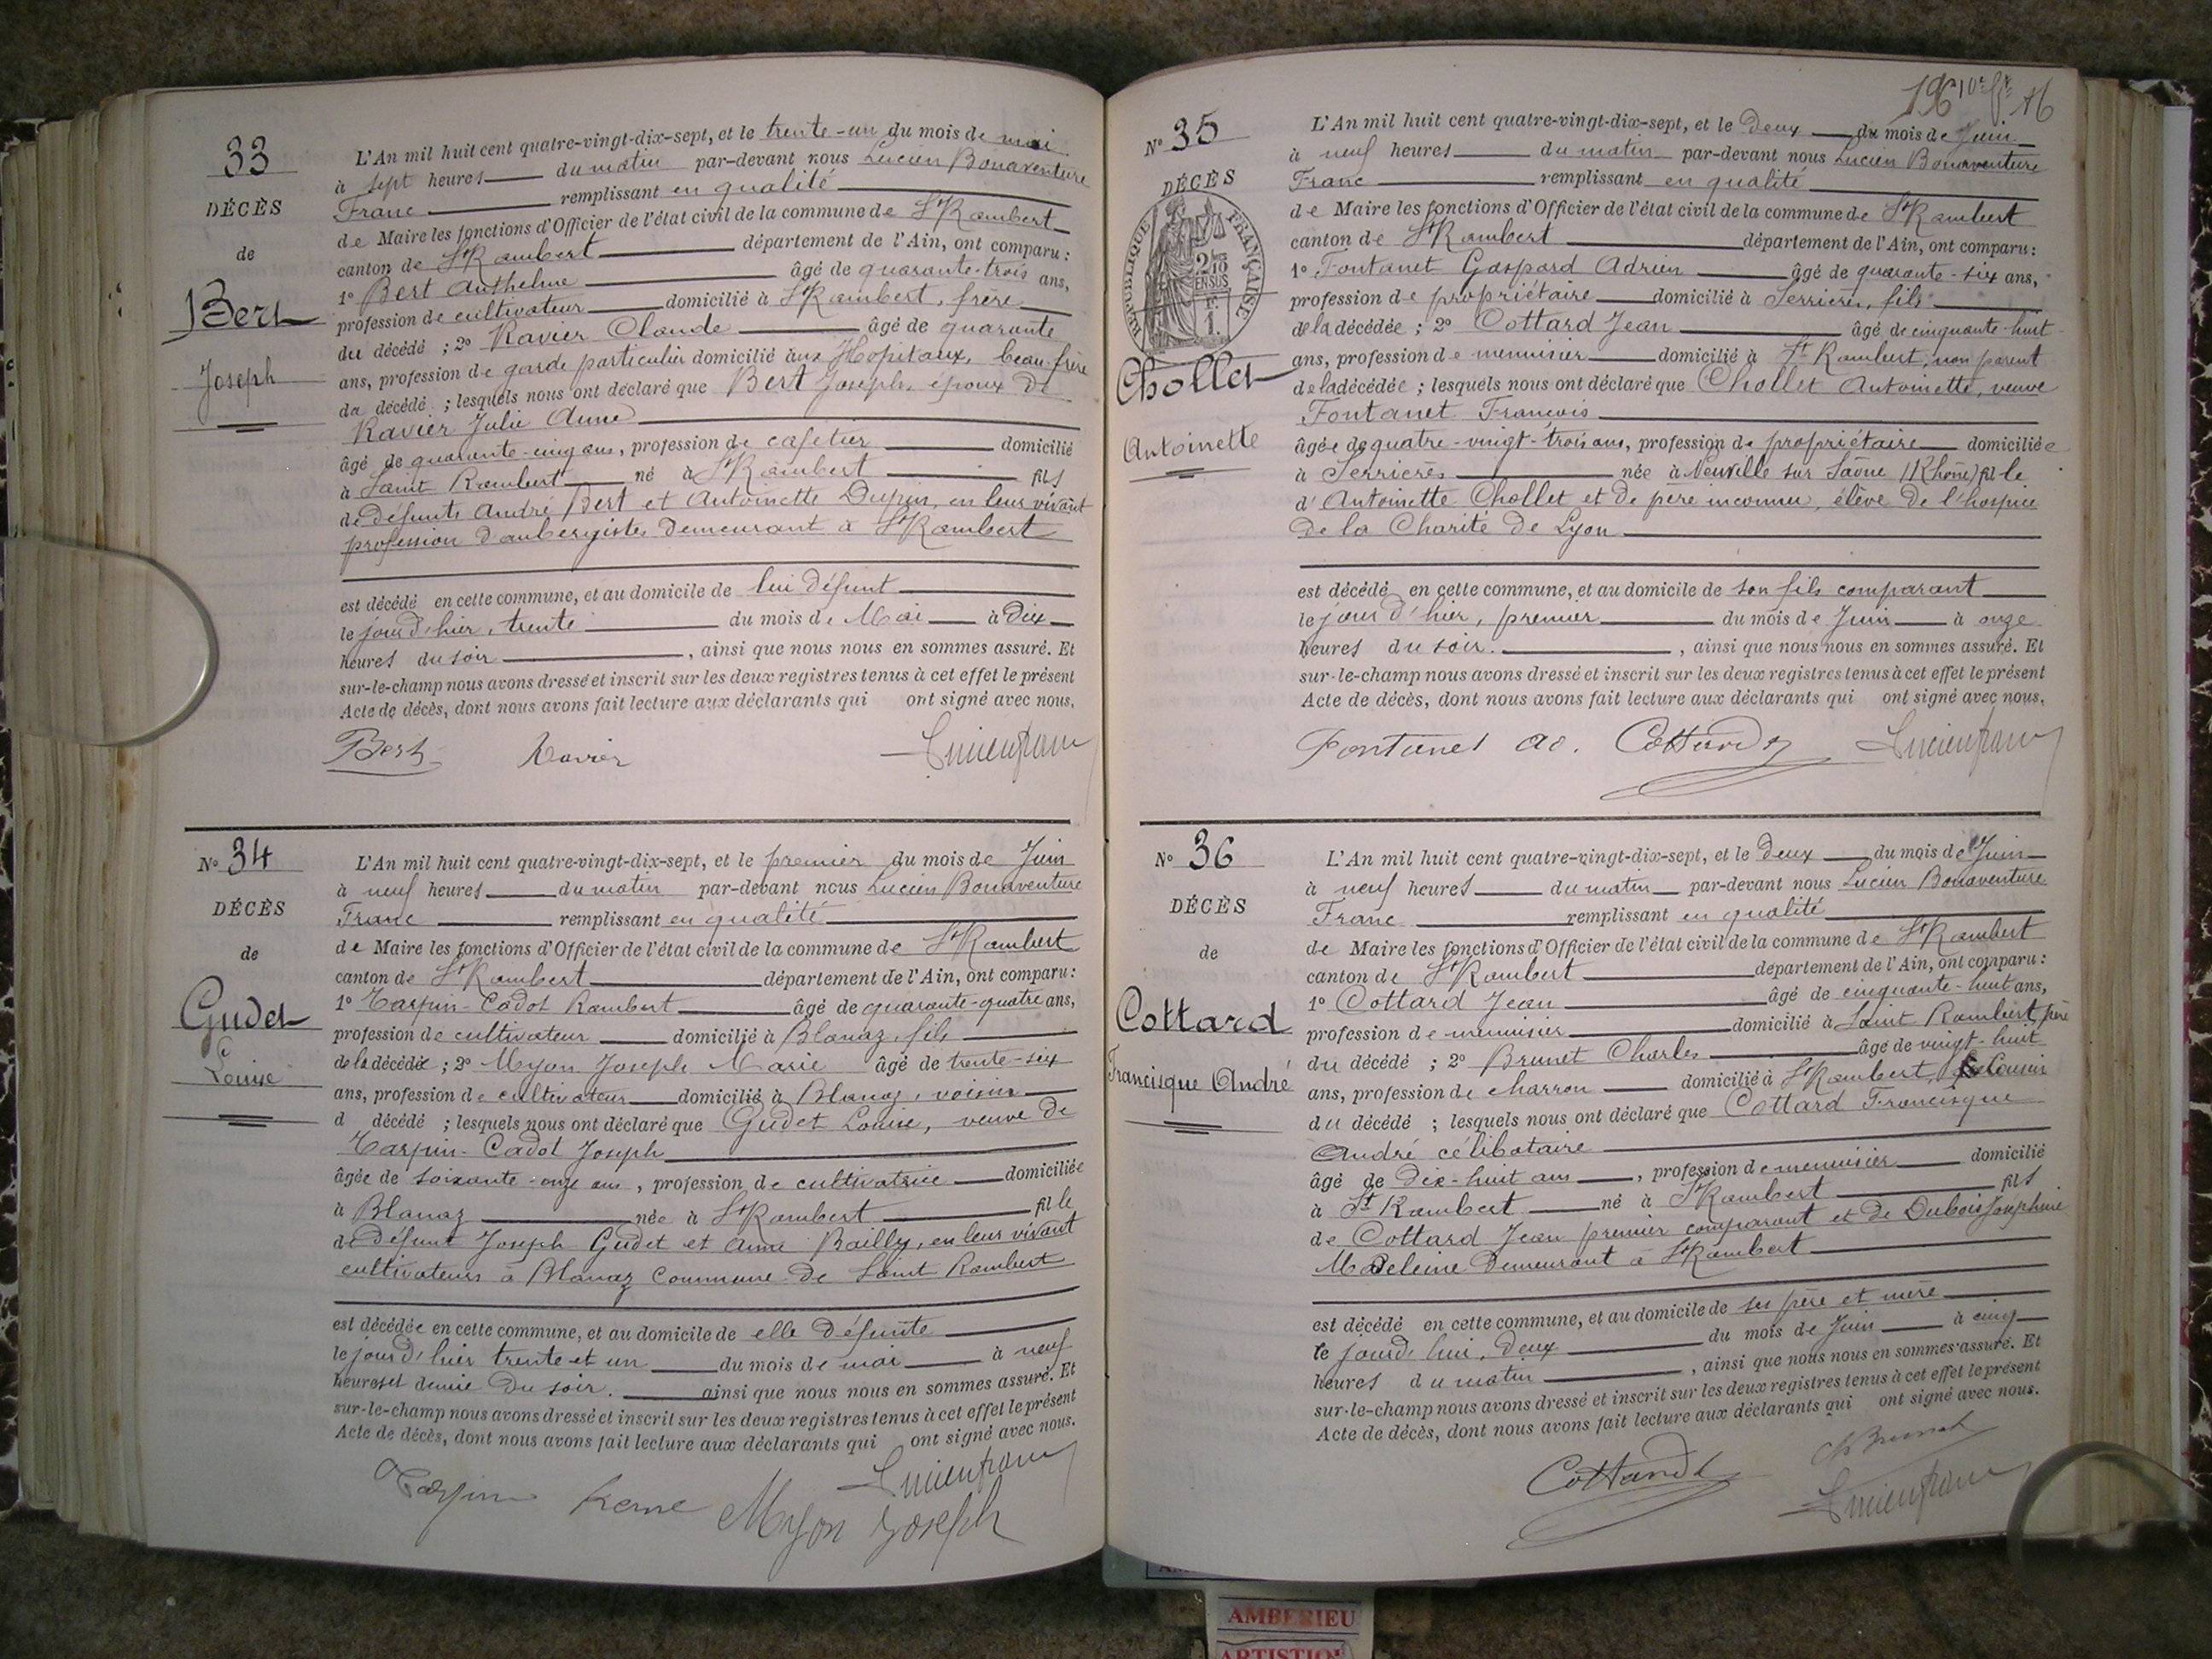 33
DÉCÈS
de
Bert
Joseph
L'An mil huit cent quatre-vingt-dix-sept, et le trente-un du mois de mai
à sept heures du matin par-devant nous Lucien Bonaventure
Franc remplissant en qualité
de Maire les fonctions d'Officier de l'état civil de la commune de St Rambert
canton de St Rambert département de l'Ain, ont comparu :
1° Bert Anthelme âgé de quarante-trois ans,
profession de cultivateur domicilié à St Rambert, frère
du décédé ; 2° Ravier Claude âgé de quarante
ans, profession de garde particulier domicilié aux Hopitaux, beau-frère
du décédé ; lesquels nous ont déclaré que Bert Joseph, époux de
Ravier Julie Anne
âgé de quarante-cinq ans, profession de cafetier domicilié
à Saint Rambert né à St Rambert fils
de défunts André Bert et Antoinette Dupin, en leur vivant
profession d'aubergistes demeurant à St Rambert
est décédé en cette commune, et au domicile de lui défunt
le jour d'hier, trente du mois de Mai à Dix
heures du soir , ainsi que nous nous en sommes assuré. Et
sur-le-champ nous avons dressé et inscrit sur les deux registres tenus à cet effet le présent
Acte de décès, dont nous avons fait lecture aux déclarants qui ont signé avec nous.
Bert Ravier Lucien Franc
N° 34
DÉCÈS
de
Gudet
Louise
L'An mil huit cent quatre-vingt-dix-sept, et le premier du mois de Juin
à neuf heures du matin par-devant nous Lucien Bonaventure
Franc remplissant en qualité
de Maire les fonctions d'Officier de l'état civil de la commune de St Rambert
canton de St Rambert département de l'Ain, ont comparu :
1° Tarpin-Cadot Rambert âgé de quarante-quatre ans,
profession de cultivateur domicilié à Blanaz, fils
de la décédée ; 2° Myon Joseph Marie âgé de trente-six
ans, profession de cultivateur domicilié à Blanaz, voisin
d décédé ; lesquels nous ont déclaré que Gudet Louise, veuve de
Tarpin-Cadot Joseph
âgée de soixante-onze ans, profession de cultivatrice domiciliée
à Blanaz née à St Rambert fille
de défunt Joseph Gudet et Anne Bailly, en leur vivant
cultivateurs à Blanaz Commune de Saint Rambert
est décédée en cette commune, et au domicile de elle défunte
le jour d'hier trente et un du mois de mai à neuf
heures et demie du soir. ainsi que nous nous en sommes assuré. Et
sur-le-champ nous avons dressé et inscrit sur les deux registres tenus à cet effet le présent
Acte de décès, dont nous avons fait lecture aux déclarants qui ont signé avec nous.
Lucien Franc
Tarpin Myon Joseph
196 10e ft 16
N° 35
DÉCÈS
RÉPUBLIQUE FRANÇAISE
2/10
EN SUS
F.
1.
Chollet
Antoinette
L'An mil huit cent quatre-vingt-dix-sept, et le deux du mois de Juin
à neuf heures du matin par-devant nous Lucien Bonaventure
Franc remplissant en qualité
de Maire les fonctions d'Officier de l'état civil de la commune de St Rambert
canton de St Rambert département de l'Ain, ont comparu :
1° Fontanet Gaspard Adrien âgé de quarante-six ans,
profession de propriétaire domicilié à Serrières, fils
de la décédée ; 2° Cottard Jean âgé de cinquante-huit
ans, profession de menuisier domicilié à St Rambert, non parent
de la décédée ; lesquels nous ont déclaré que Chollet Antoinette, veuve
Fontanet François
âgée de quatre-vingt-trois ans, profession de propriétaire domiciliée
à Serrières née à Neuville sur Saône (Rhône) fille
d'Antoinette Chollet et de père inconnu, élève de l'hospice
de la Charité de Lyon
est décédé en cette commune, et au domicile de son fils comparant
le jour d'hier, premier du mois de Juin à onze
heures du soir. , ainsi que nous nous en sommes assuré. Et
sur-le-champ nous avons dressé et inscrit sur les deux registres tenus à cet effet le présent
Acte de décès, dont nous avons fait lecture aux déclarants qui ont signé avec nous.
Fontanet ad. Cottard Lucien Franc
N° 36
DÉCÈS
de
Cottard
Francisque André
L'An mil huit cent quatre-vingt-dix-sept, et le deux du mois de Juin
à neuf heures du matin par-devant nous Lucien Bonaventure
Franc remplissant en qualité
de Maire les fonctions d'Officier de l'état civil de la commune de St Rambert
canton de St Rambert département de l'Ain, ont comparu :
1° Cottard Jean âgé de cinquante-huit ans,
profession de menuisier domicilié à Saint Rambert, père
du décédé ; 2° Brunet Charles âgé de vingt-huit
ans, profession de charron domicilié à St Rambert, Cousin
du décédé ; lesquels nous ont déclaré que Cottard Francisque
André célibataire
âgé de dix-huit ans , profession de menuisier domicilié
à St Rambert né à St Rambert fils
de Cottard Jean premier comparant et de Dubois Josephine
Madeleine demeurant à St Rambert
est décédé en cette commune, et au domicile de ses père et mère
le jourd'hui, deux du mois de Juin à cinq
heures du matin , ainsi que nous nous en sommes assuré. Et
sur-le-champ nous avons dressé et inscrit sur les deux registres tenus à cet effet le présent
Acte de décès, dont nous avons fait lecture aux déclarants qui ont signé avec nous.
Cottard Ch Brunet
Lucien Franc
AMBERIEU
ARTISTIQU